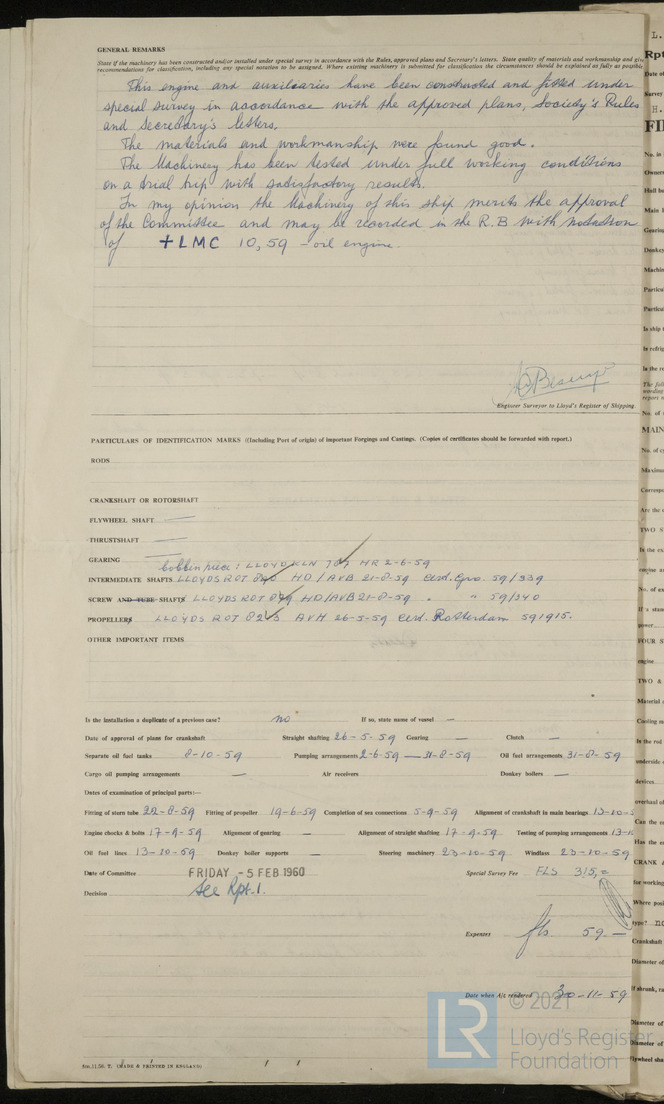 GENERAL REMARKS
State if the machinery has been constructed and/or installed under special survey in accordance with the Rules, approved plans and Secretary's letters. State quality of materials and workmanship and
recommendations for classification, including any special notation to be assigned. Where existing machinery is submitted for classification the circumstances should be explained as fully as possible
This engine and auxiliaries have been constructed and fitted under
special survey in accordance with the approved plans, Society's Rules
and Secretary's letters.
The materials and workmanship were found good.
The Machinery has been tested under full working conditions
on a trial trip with satisfactory results.
In my opinion the Machinery of this ship merits the approval
of the Committee and may be recorded in the R.B with notation
of +LMC 10,59 - oil engine.
Engineer Surveyor to Lloyd's Register of Shipping.
PARTICULARS OF IDENTIFICATION MARKS (Including Port of origin) of important Forgings and Castings. (Copies of certificates should be forwarded with report.)
RODS
CRANKSHAFT OR ROTORSHAFT
FLYWHEEL SHAFT —
THRUSTSHAFT —
GEARING —
bobbin piece: LLOYD KLN HR 2-6-59
INTERMEDIATE SHAFTS LLOYDS ROT HD/AVB 21-8-59 Cert. Gro. 59/339
SCREW AND TUBE SHAFTS LLOYDS ROT HD/AVB 21-8-59 " " 59/340
PROPELLERS LLOYDS ROT AVH 26-5-59 Cert. Rotterdam 591915.
OTHER IMPORTANT ITEMS
Is the installation a duplicate of a previous case? no If so, state name of vessel —
Date of approval of plans for crankshaft Straight shafting 26-5-59 Gearing — Clutch —
Separate oil fuel tanks 8-10-59 Pumping arrangements 2-6-59 — 31-8-59 Oil fuel arrangements 31-8-59
Cargo oil pumping arrangements — Air receivers Donkey boilers —
Dates of examination of principal parts:—
Fitting of stern tube 22-8-59 Fitting of propeller 19-6-59 Completion of sea connections 5-9-59 Alignment of crankshaft in main bearings 13-10-5
Engine chocks & bolts 17-9-59 Alignment of gearing — Alignment of straight shafting 17-9-59 Testing of pumping arrangements 13-1
Oil fuel lines 13-10-59 Donkey boiler supports — Steering machinery 23-10-59 Windlass 23-10-59
Date of Committee FRIDAY - 5 FEB 1960 Special Survey Fee FLS 315,=
Decision See Rpt. 1.
Expenses fls 59.—
Date when A/c rendered 30-11-59
© 2021
LR Lloyd's Register
Foundation
(MADE & PRINTED IN ENGLAND)